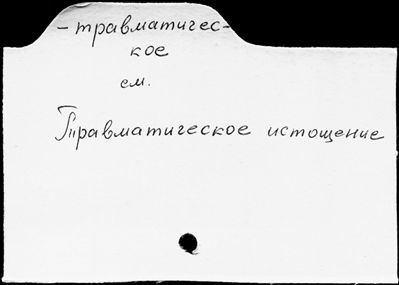 - травматичес-
кое
см.
Травматическое истощение